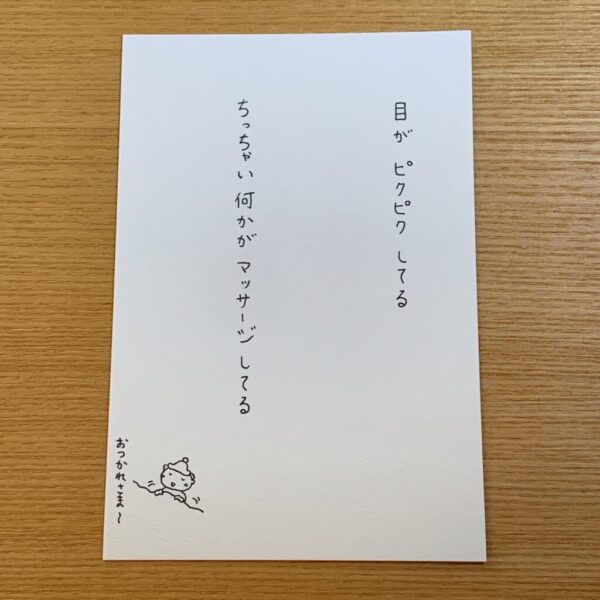 目が ピクピク してる
ちっちゃい 何かが マッサージ してる
おつかれさま〜